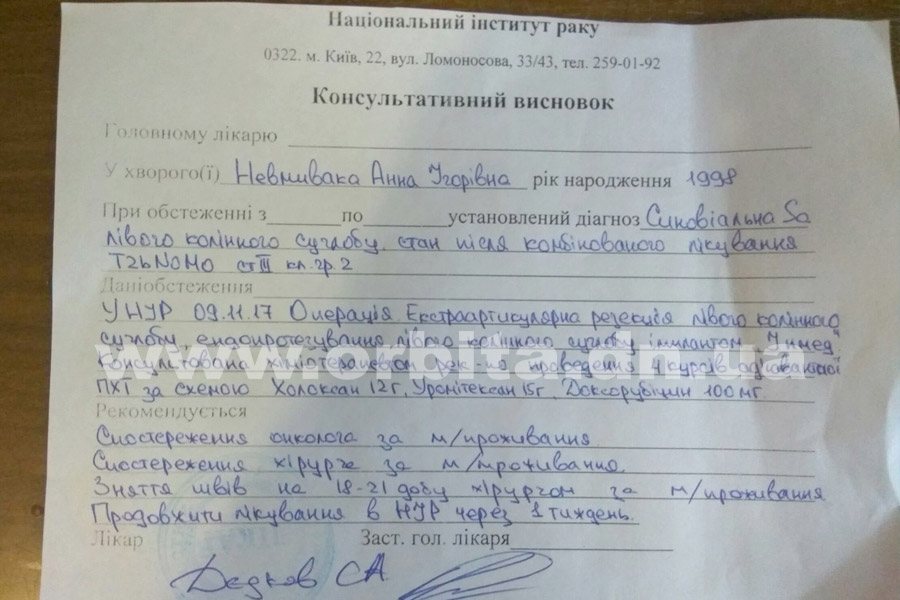 Національний інститут раку
0322. м. Київ, 22, вул. Ломоносова, 33/43, тел. 259-01-92
Консультативний висновок
Головному лікарю
У хворого(ї) Невмивака Анна Ігорівна рік народження 1998
При обстеженні з по установлений діагноз Синовіальна Sa
лівого колінного суглобу, стан після комбінованого лікування
T2bN0M0 ст III кл.гр.2
Даніобстеження
У НІР 09.11.17 Операція Екстраартикулярна резекція лівого колінного
суглобу, ендопротезування лівого колінного суглобу імплантом "Інмед"
Консультована хіміотерапевтом рек-но проведення 4 курсів ад'ювантної
ПХТ за схемою Холоксан 12г, Уромітексан 15г, Доксорубіцин 100мг.
www.orbita.dn.ua
Рекомендується
Спостереження онколога за м/проживання
Спостереження хірурга за м/проживання.
Зняття швів на 18-21 добу хірургом за м/проживання
Продовжити лікування в НІР через 1 тиждень.
Лікар Заст. гол. лікаря
Дєдков СА